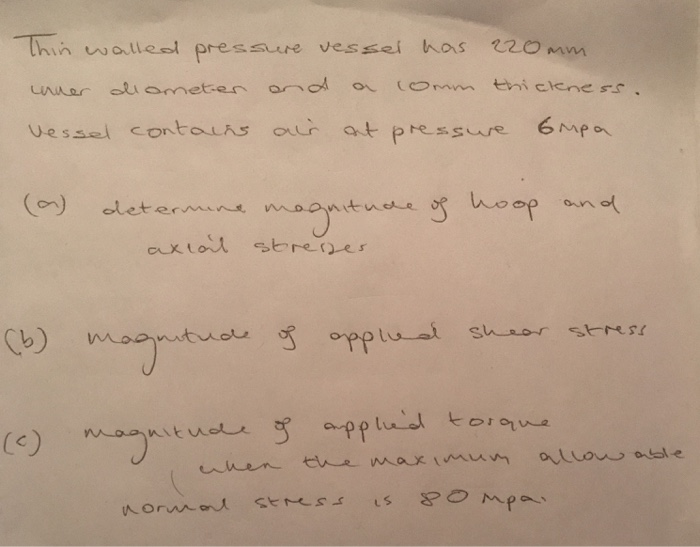 Thin walled pressure vessel has 220mm
inner diameter and a 10mm thickness.
Vessel contains air at pressure 6Mpa
(a) determine magnitude of hoop and
axial stresses
(b) magnitude of applied shear stress
(c) magnitude of applied torque
when the maximum allowable
normal stress is 80 Mpa.